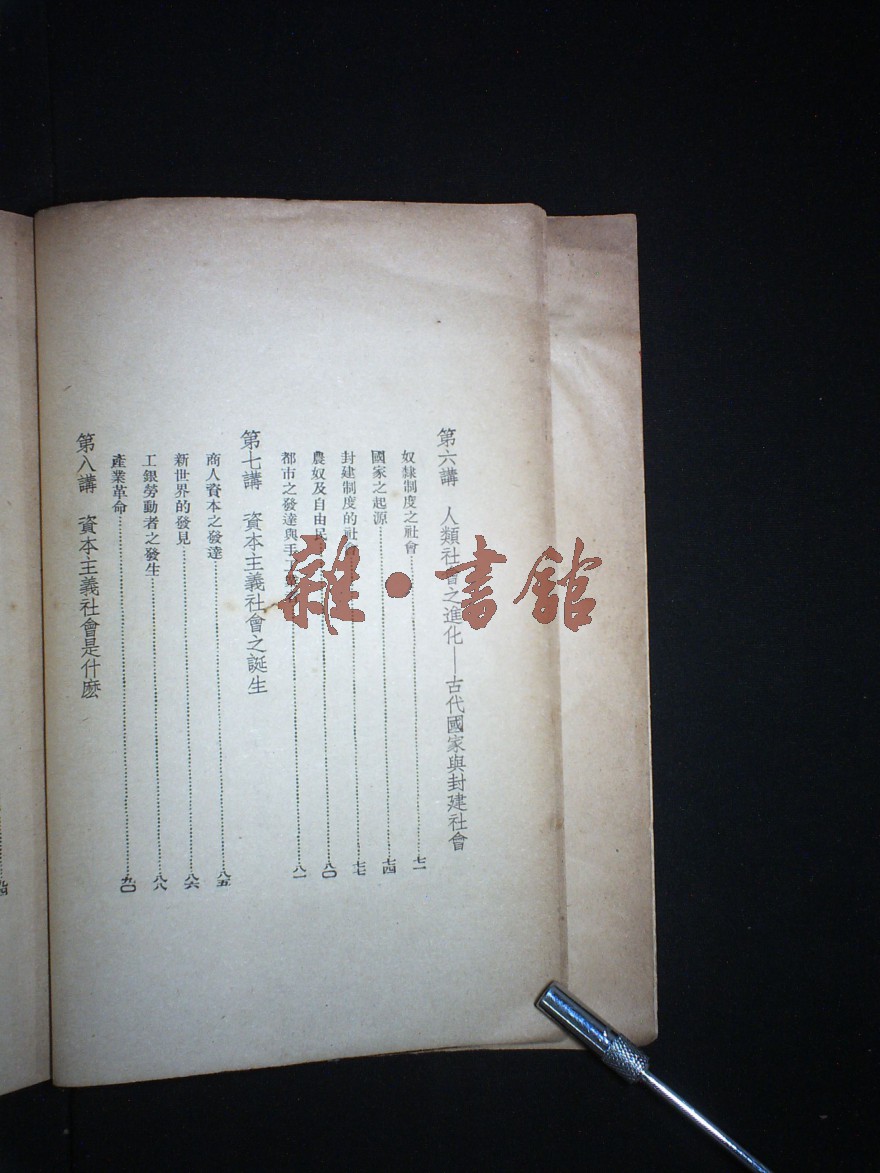 第六講 人類社會之進化—古代國家與封建社會
奴隸制度之社會……七一
國家之起源……七四
封建制度的社會……七七
農奴及自由民……八〇
都市之發達與手工……八一
第七講 資本主義社會之誕生
商人資本之發達……八五
新世界的發見……八六
工銀勞動者之發生……八八
產業革命……九〇
第八講 資本主義社會是什麽
雜·書館